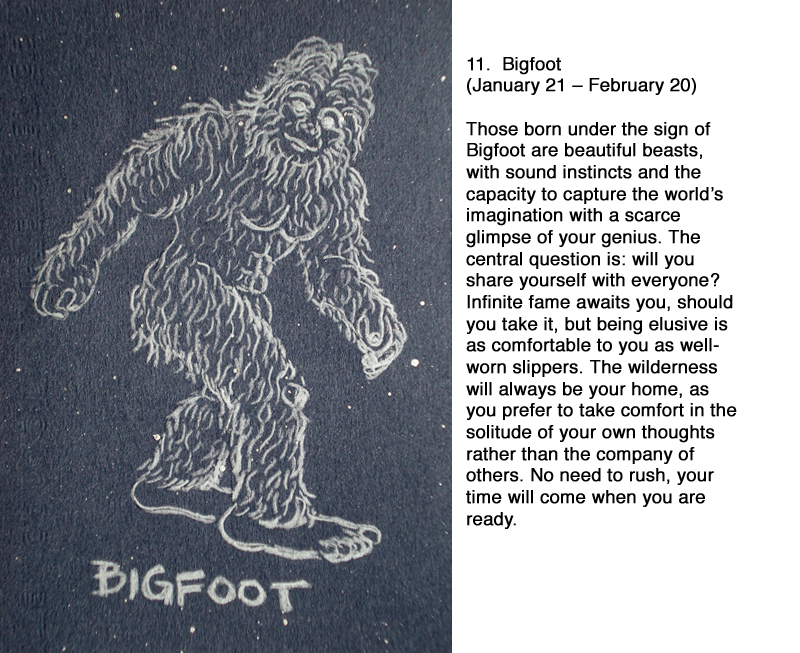 11.  Bigfoot
(January 21 – February 20)
Those born under the sign of
Bigfoot are beautiful beasts,
with sound instincts and the
capacity to capture the world's
imagination with a scarce
glimpse of your genius. The
central question is: will you
share yourself with everyone?
Infinite fame awaits you, should
you take it, but being elusive is
as comfortable to you as well-
worn slippers. The wilderness
will always be your home, as
you prefer to take comfort in the
solitude of your own thoughts
rather than the company of
others. No need to rush, your
time will come when you are
ready.
BIGFOOT